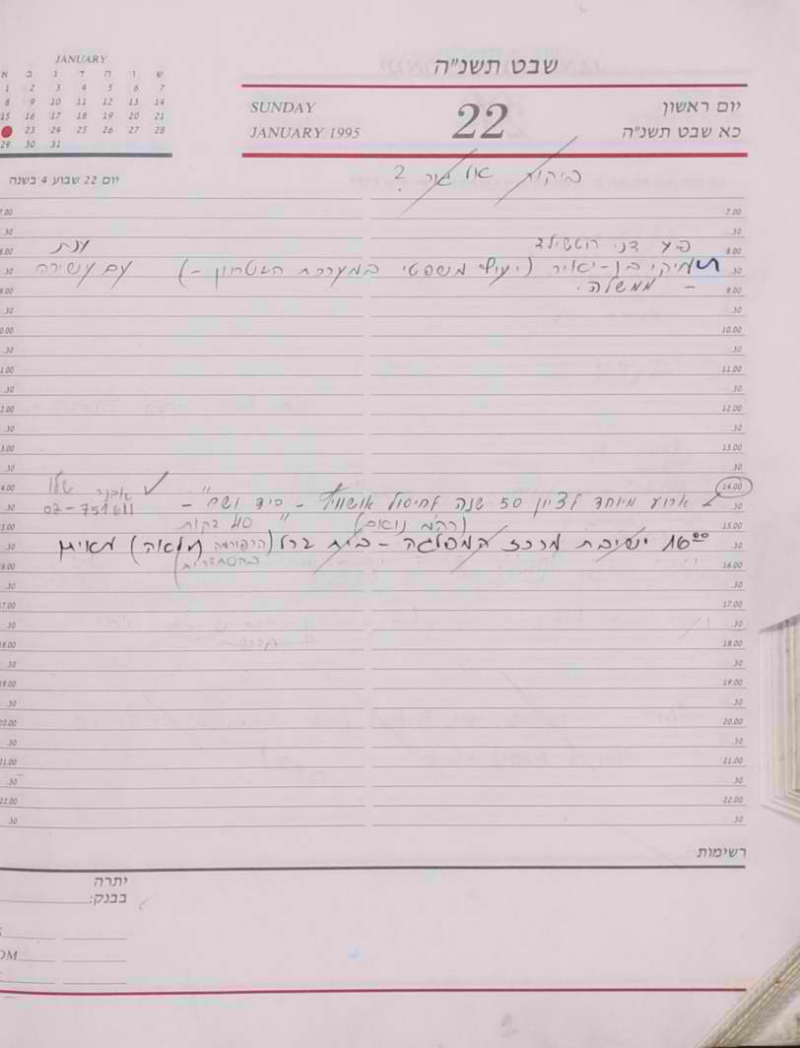 שבט תשנ"ה
JANUARY
א ב ג ד ה ו ש
1 2 3 4 5 6 7
8 9 10 11 12 13 14
15 16 17 18 19 20 21
23 24 25 26 27 28
29 30 31
SUNDAY
JANUARY 1995
22
יום ראשון
כא שבט תשנ"ה
יום 22 שבוע 4 בשנה
ביקור
?
7.00
.30
ענת
8.00
מיקי בן-יאיר (יעוץ משפטי במערכת הבטחון -)
.30
- ממשלה.
9.00
.30
10.00
.30
11.00
.30
12.00
.30
13.00
.30
14.00
ארוע מיוחד לציון 50 שנה לחיסול אושוויץ - ביד ושם -
אבנר שלו
02-751611
.30
(רהמ נואם) 40 דקות
15.00
16⁰⁰ ישיבת מרכז המפלגה - בית ברל (הרפורמה
.30
בהסתדרות)
16.00
.30
17.00
.30
18.00
.30
19.00
.30
20.00
.30
21.00
.30
22.00
.30
רשימות
יתרה
בבנק: